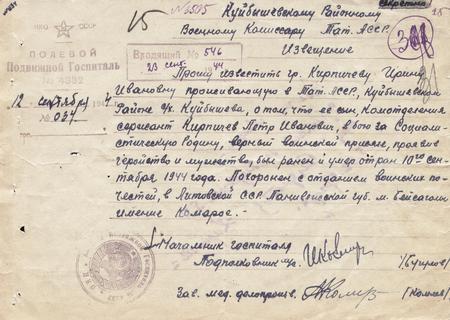 Секретно
15
№6505
Куйбышевскому Районному
Военному Комиссару Тат. АССР.
Извещение
НКО СССР
ПОЛЕВОЙ
Подвижной Госпиталь
№ 4332
Входящий № 546
23 сент. 1944
12 сентября 194
№ 037
Прошу известить гр. Кирпичеву Ирину
Ивановну проживающую в Тат. АССР, Куйбышевском
Районе г/х. Куйбышева, о том, что её сын, Комотделения
сержант Кирпичев Петр Иванович, в бою за Социали-
стическую Родину, верный воинской присяге, проявив
геройство и мужество, был ранен и умер от ран 10го сен-
тября 1944 года. Похоронен с отданием воинских по-
честей, в Литовской ССР. губ. м.
имение Комарое. -
Начальник госпиталя
Подполковник м/с.
Зав. мед. делопроизв.